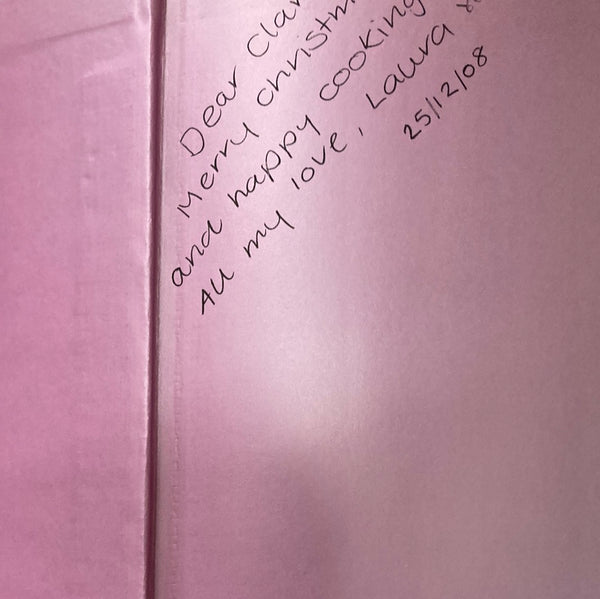 Dear
Merry
and happy cooking
All my love, Laura
25/12/08